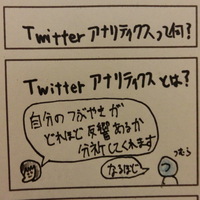 Twitter アナリティクスって何?
Twitter アナリティクスとは?
自分のつぶやきが
どれほど反響あるか
分析してくれます
なるほど
つむら
つ